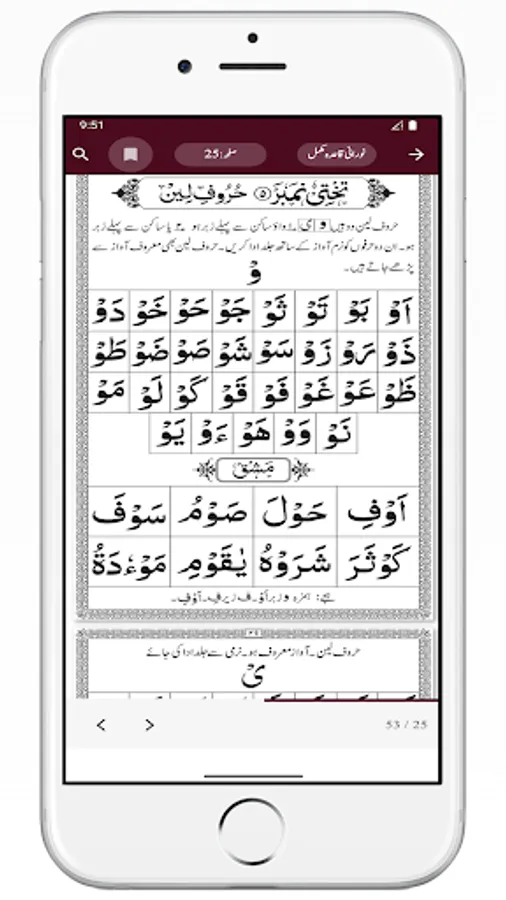 9:51
صفحہ: 25 نورانی قاعدہ مکمل
تختی نمبر ۵ حُرُوفِ لِیْن
حروف لین دو ہیں و ی۔ واؤ ساکن سے پہلے زبر ہو یا ساکن سے پہلے زبر
ہو۔ ان دو حرفوں کو نرم آواز کے ساتھ جلد ادا کریں۔ حروف لین بھی معروف آواز سے
پڑھے جاتے ہیں۔
وْ
اَوْ بَوْ تَوْ ثَوْ جَوْ حَوْ خَوْ دَوْ
ذَوْ رَوْ زَوْ سَوْ شَوْ صَوْ ضَوْ طَوْ
ظَوْ عَوْ غَوْ فَوْ قَوْ كَوْ لَوْ مَوْ
نَوْ وَوْ هَوْ ءَوْ يَوْ
مَشِقْ
اَوْفِ حَوْلَ صَوْمُ سَوْفَ
كَوْثَرَ شَرَوْهُ يٰقَوْمِ مَوْءٗدَةُ
ہجے: ہمزہ و زبر اَوْ۔ ف زیر فِ۔ اَوْفِ۔
حروف لین۔ آواز معروف ہو۔ نرمی سے جلد ادا کی جائے
یْ
53 / 25